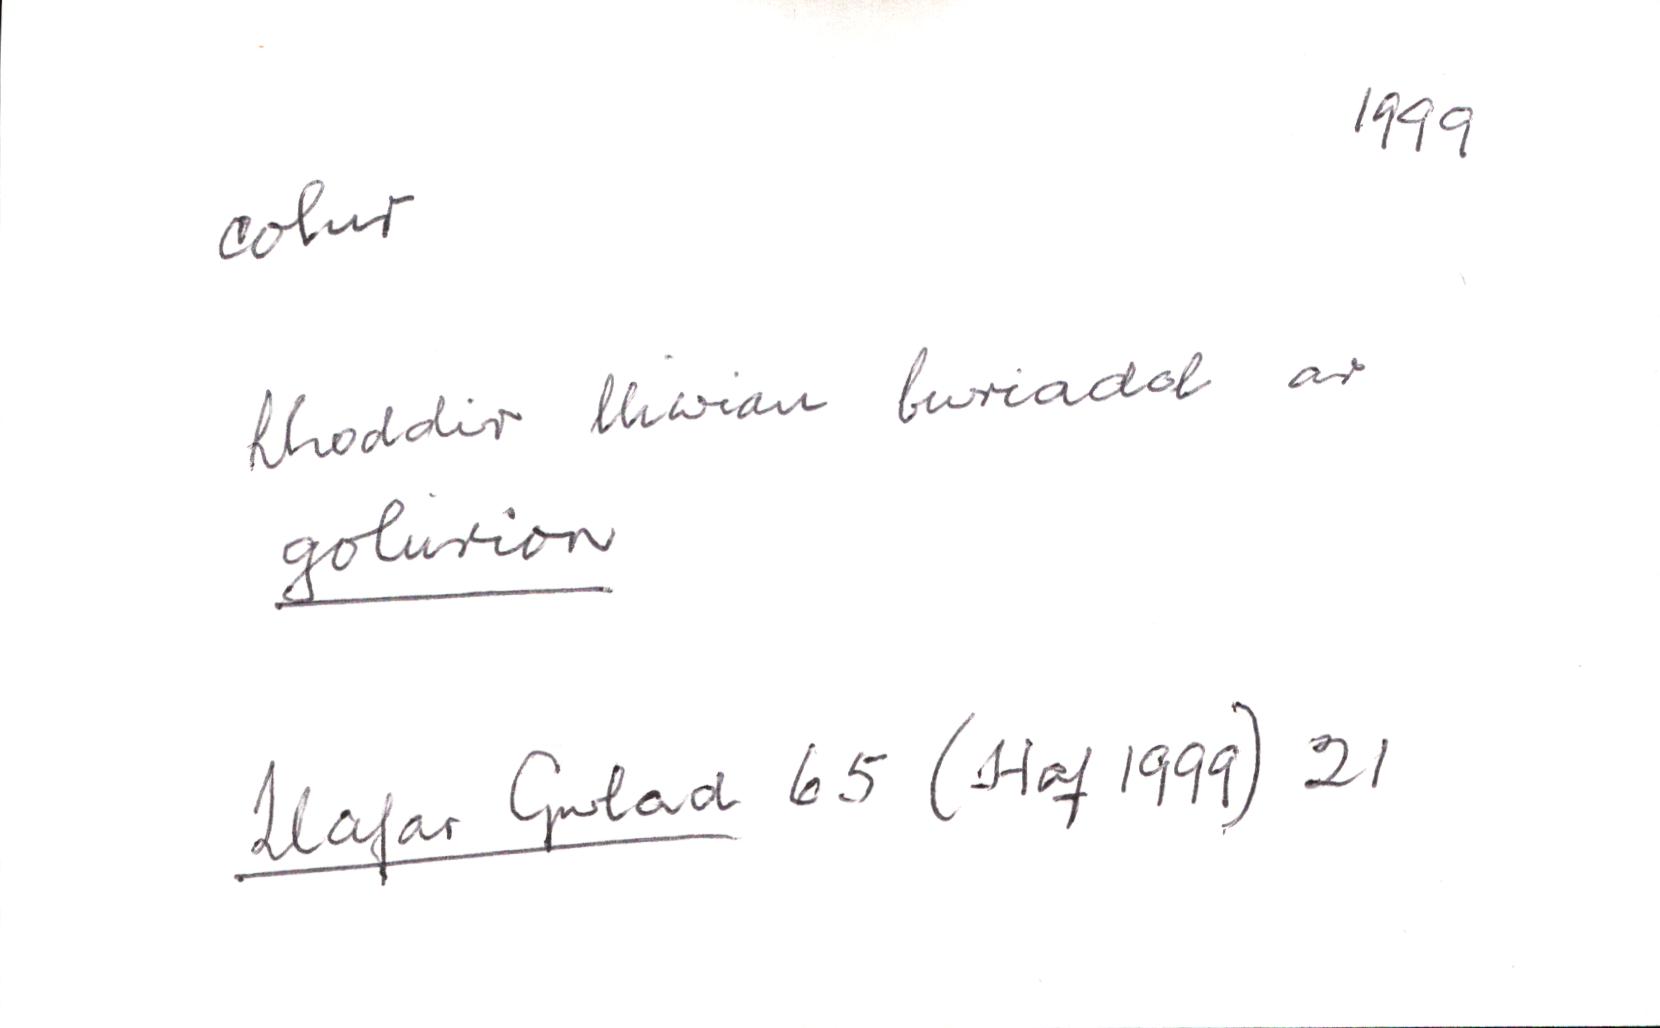 1999
colur
Rhoddir lliwiau bwriadol ar
golurion
Llafar Gwlad 65 (Haf 1999) 21